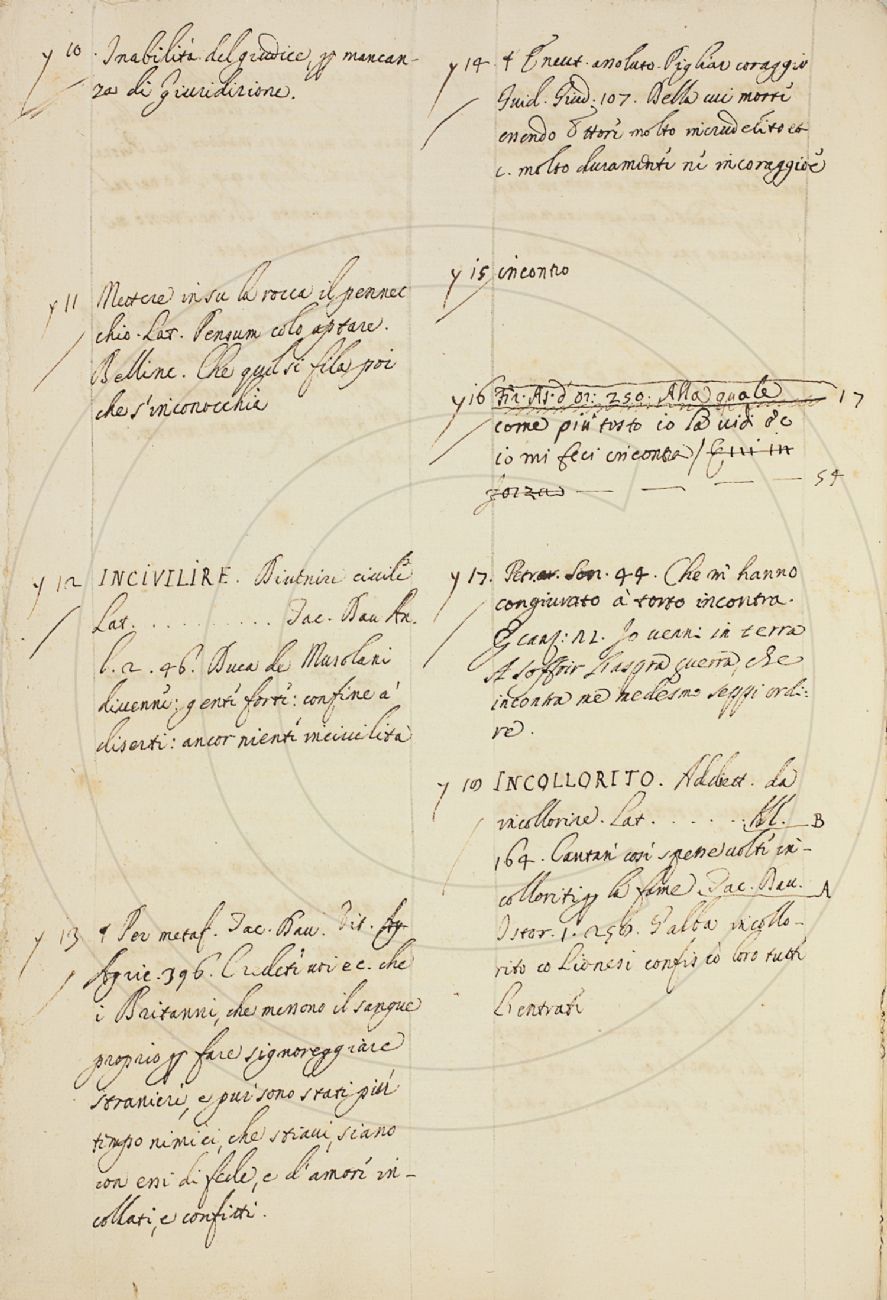 y 10 . Inabilità del giudice, p mancan-
za di Giuridizione.
y 11 Mettere in su la rocca il pennec
chio. Lat. Pensum colo aptare.
Bellinc. Che quel si fila poi
che s'inconocchia
y 12 INCIVILIRE. Divenire civile
Lat. . . . . . . . . . Tac. Dav An.
l. 2. 46. Duca de Musolani
divenne; genti forti: confine a'
diserti: ancor nienti incivilita
y 13 Per metaf. Tac. Dav. Vit.
Agric. 396. Credeti voi ec. che
i Britanni, che menono il sangue
proprio p fare signoreggiare
stranieri, e pur sono stati più
tempo nimici, che stiavi, siano
con essi di fede, e d'amore in-
collati, e confitti.
y 14 neut. assoluto. Pigliar coraggio
Guid. Giud. 107. Della cui morti
essendo Ettori molto incrudelito et
c. molto duramenti ni incoraggiòe
y 15 incontro
y 16 Fir. As. d'or: 250. Alla quale 17
come più tosto io la vidi &c
io mi feci incontra / in
forza — — — — 54
y 17. Petrar. Son. 44. Che m'hanno
congiurato à torto incontra.
E canz: 21. Io venni in terra
A soffrir l'aspra guerra, che
incontra me medesmo seppi ordi:
re.
y 18 INCOLLORITO. Addiett. da
incollorire. Lat. . . . . . . M. B
164. Cantari così spesse volti in-
colloriti p la fame Tac. Dav. A
Istor. 1. 256. Galba incollo-
rito co Lionesi confiscò loro tutti
L'entrati